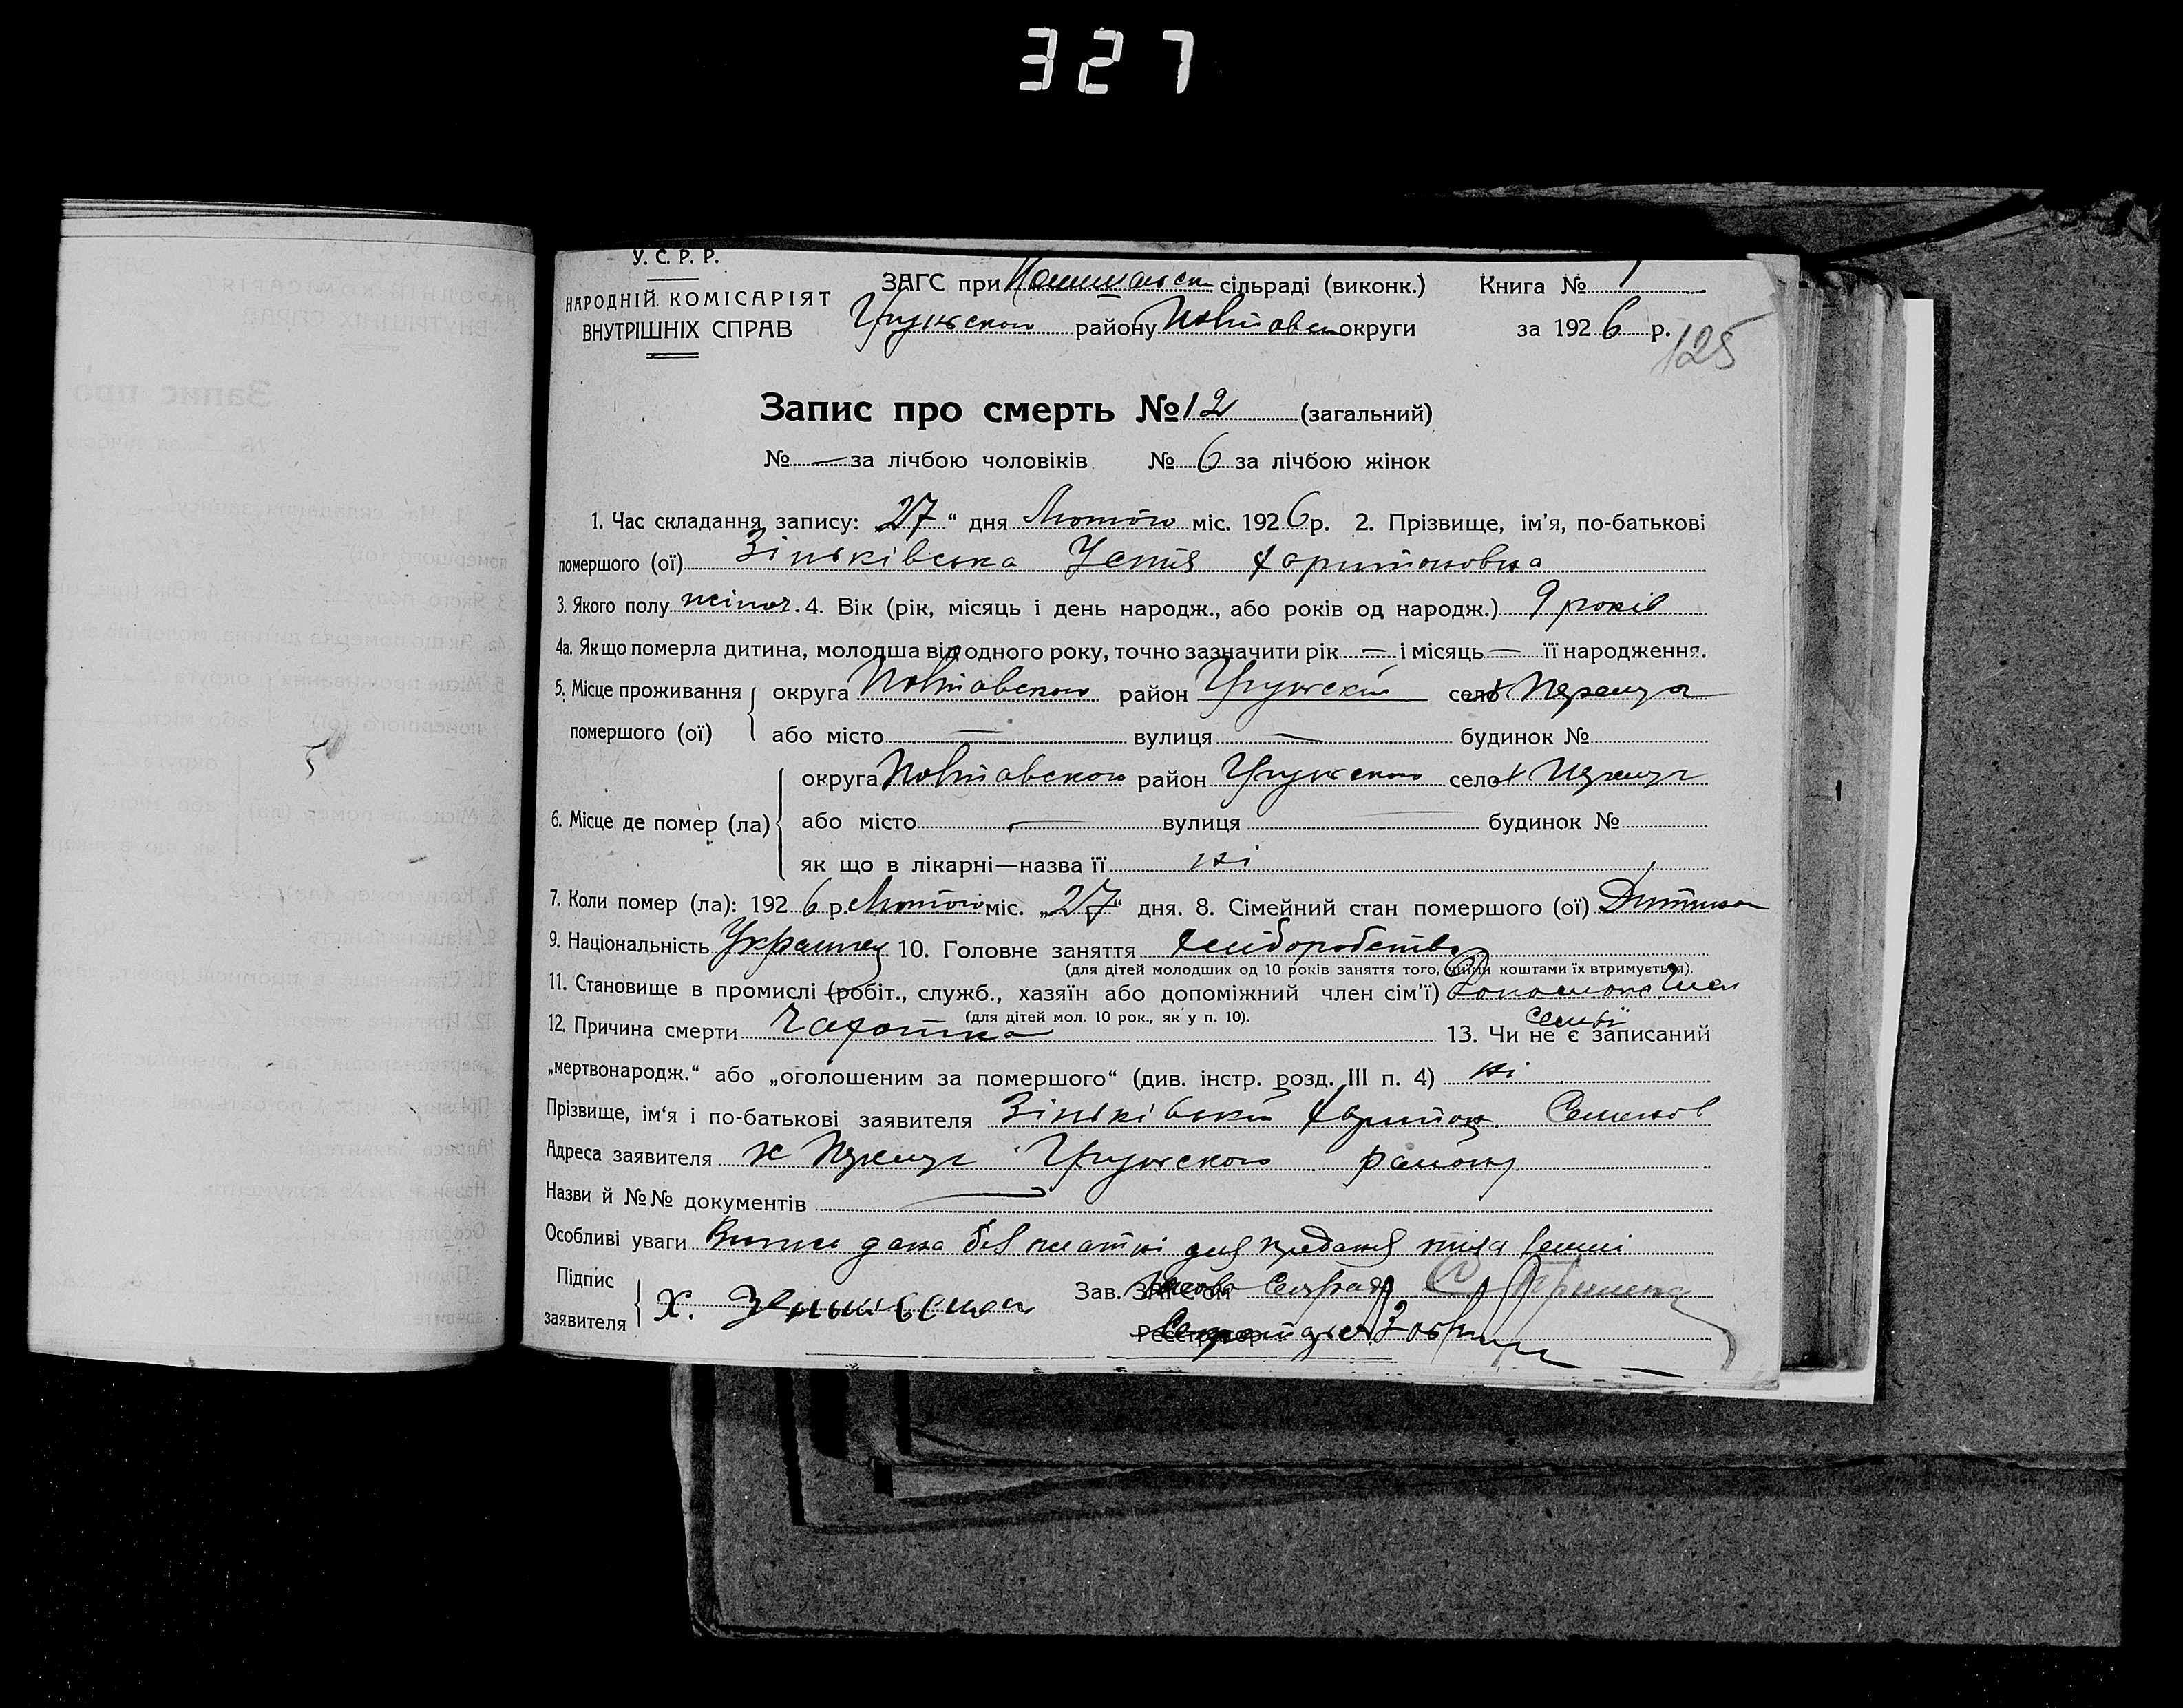 327
У. С. Р. Р.
НАРОДНІЙ КОМІСАРІЯТ
ВНУТРІШНІХ СПРАВ
ЗАГС при сільраді (виконк.) Книга № 1
району Полтавск округи за 1926 р.
125
Запис про смерть № 12 (загальний)
№ — за лічбою чоловіків № 6 за лічбою жінок
1. Час складання запису: „27“ дня Лютого міс. 1926 р. 2. Прізвище, ім’я, по-батькові
помершого (ої) Зіньківська Устя Харитоновна
3. Якого полу жіноч. 4. Вік (рік, місяць і день народж., або років од народж.) 9 років
4а. Якщо померла дитина, молодша від одного року, точно зазначити рік — і місяць — її народження.
5. Місце проживання помершого (ої) округа Полтавского район село
або місто — вулиця — будинок №
6. Місце де помер (ла) округа Полтавского район село
або місто — вулиця — будинок №
як що в лікарні—назва її ні
7. Коли помер (ла): 1926 р. Лютого міс. „27“ дня. 8. Сімейний стан помершого (ої) Дитина
9. Національність 10. Головне заняття Хліборобство
(для дітей молодших од 10 років заняття того, чиїми коштами їх втримується).
11. Становище в промислі (робіт., служб., хазяїн або допоміжний член сім’ї) член семьї
(для дітей мол. 10 рок., як у п. 10).
12. Причина смерти Чахотка 13. Чи не є записаний
„мертвонародж.“ або „оголошеним за помершого“ (див. інстр. розд. III п. 4) ні
Прізвище, ім‘я і по-батькові заявителя Зіньківській Харитон Семенов
Адреса заявителя х району
Назви й №№ документів —
Особливі уваги дана без платні для предання тіла землі
Підпис заявителя Х. Зав. ЗАГС'ом
Реєстратор